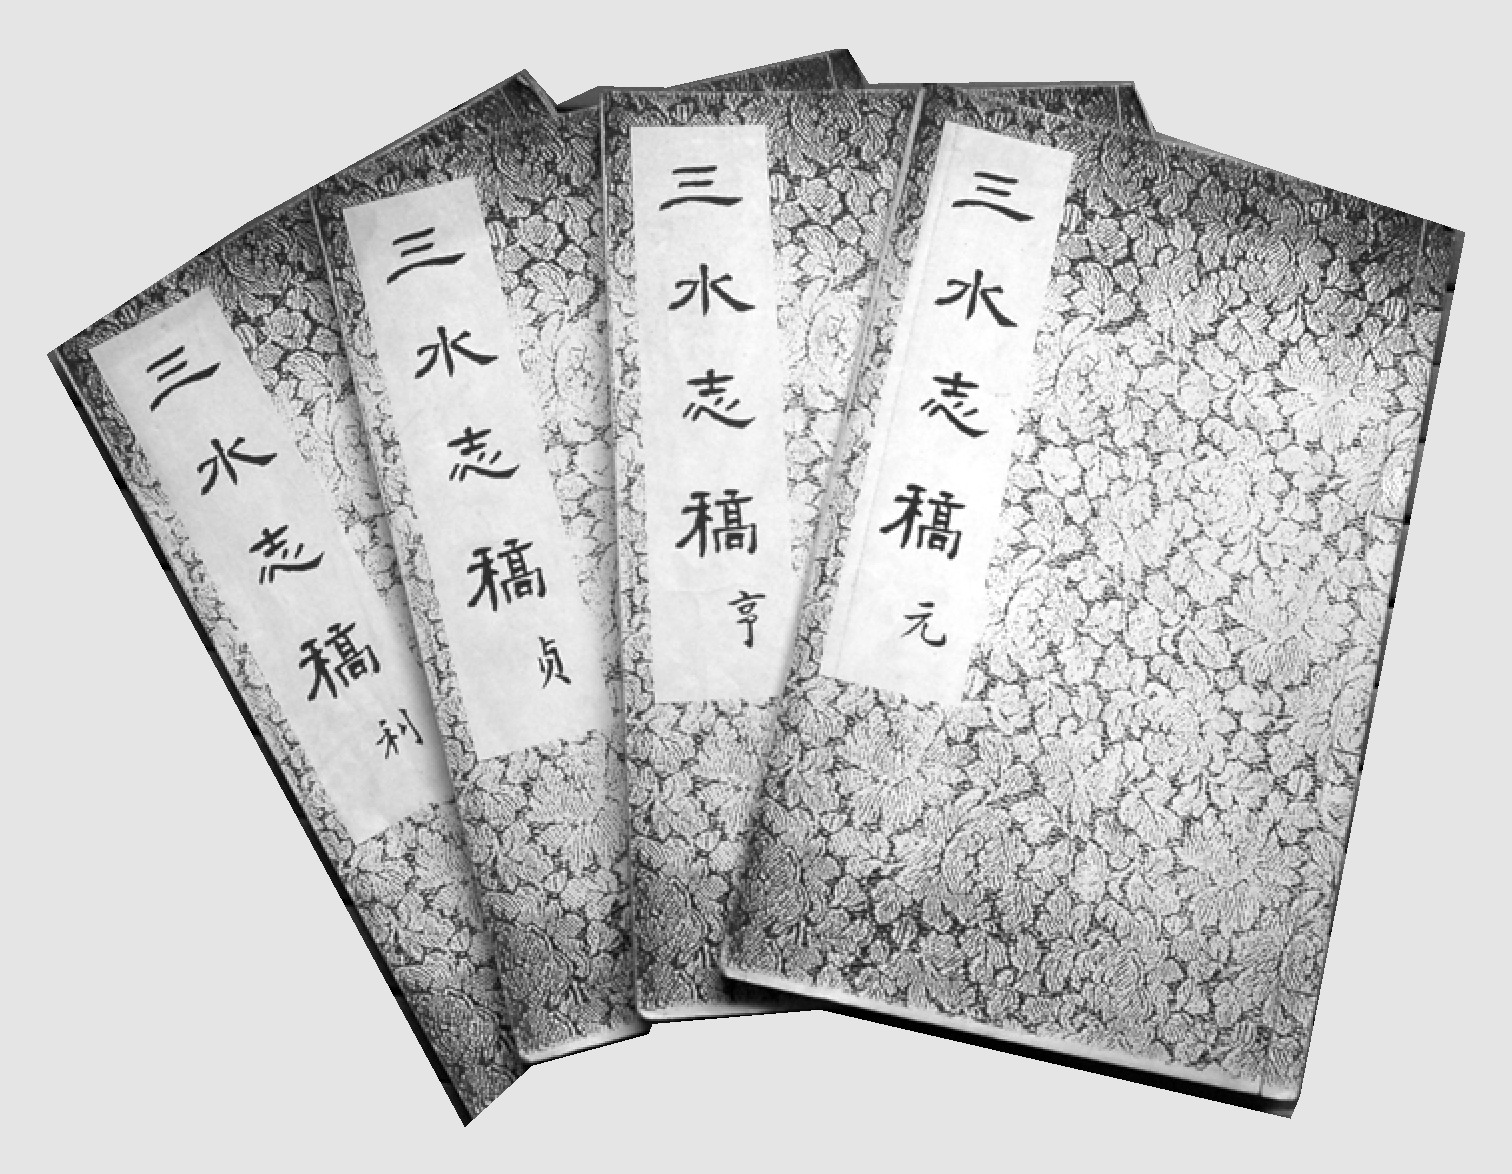 三水志稿 利
三水志稿 贞
三水志稿 亨
三水志稿 元